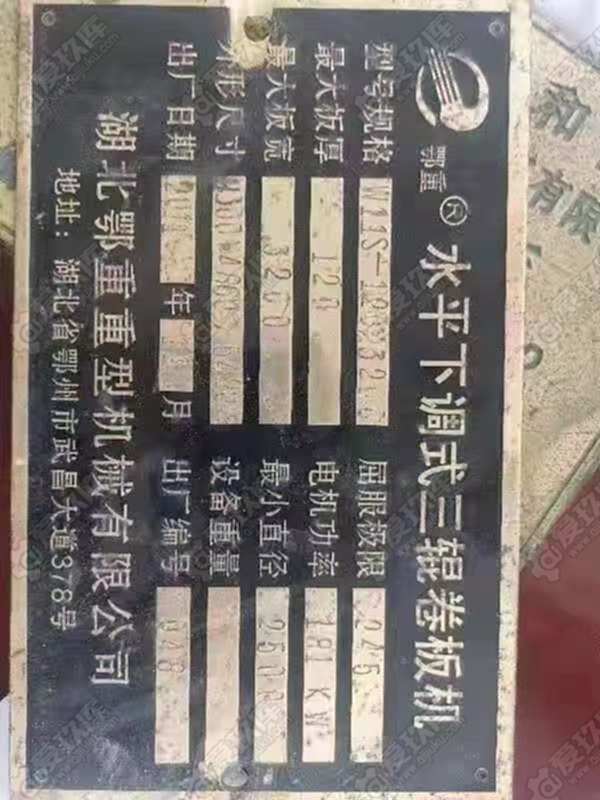 鄂重 ® 水平下调式三辊卷板机
型号规格 W11S-120*3200 屈服极限 245
最大板厚 120 电机功率 181 KW
最大板宽 3200 最小直径 2500
外形尺寸 设备重量
出厂日期 年 月 出厂编号
湖北鄂重重型机械有限公司
地址：湖北省鄂州市武昌大道378号
有限